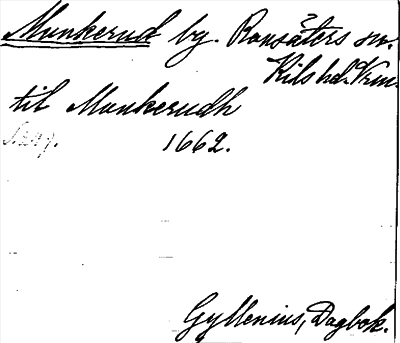 Munkerud by. Ransäters sn.
Kils hd. Vrm.
til Munkerudh
1662.
Gyllenius, Dagbok.